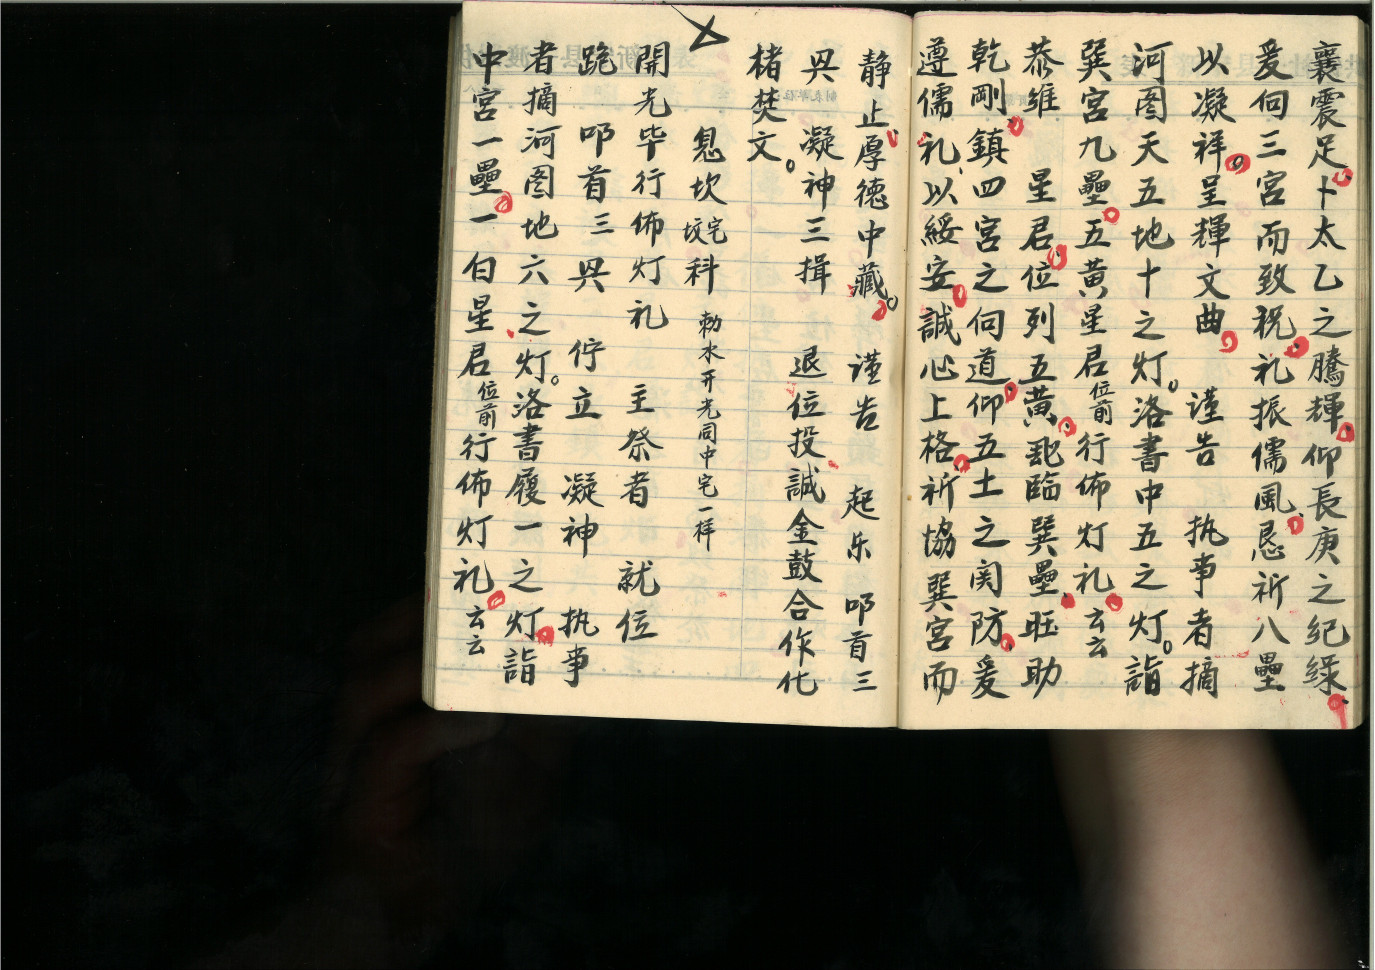 襄震足卜太乙之騰輝仰長庚之纪綠
爰何三宮而致祝礼振儒風恳祈八壘
以凝祥呈輝文曲 谨告 执事者摘
河图天五地十之灯。洛書中五之灯。詣
巽宮九壘五黃星君位前行佈灯礼云云
恭維 星君位列五黄 臨巽壘旺助
乾剛鎮四宮之伺道仰五土之関防爰
遵儒礼以綏安誠心上格祈協巽宮而
静止厚德中藏。 谨告 起乐 叩首三
兴 凝神三揖 退位投誠金鼓合作化
楮焚文。
息坎宅坟科 勅水开光同中宅一样
開光毕行佈灯礼 主祭者 就位
跪 叩首三兴 佇立 凝神 执事
者摘河图地六之灯。洛書履一之灯詣
中宮一壘一白星君位前行佈灯礼云云